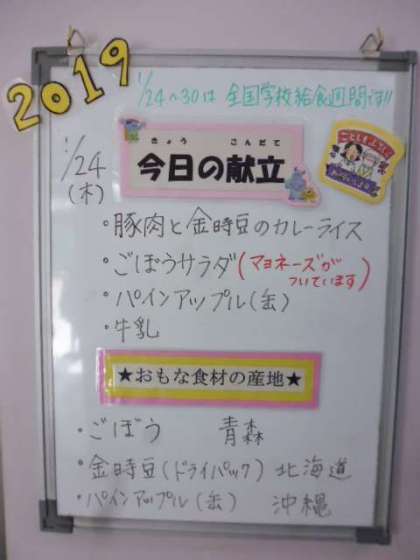 2019
1/24~30は 全国学校給食週間です!!
1/24
(木)
きょう こんだて
今日の献立
・豚肉と金時豆のカレーライス
・ごぼうサラダ(マヨネーズが
ついています)
・パインアップル(缶)
・牛乳
★おもな食材の産地★
・ごぼう 青森
・金時豆(ドライパック) 北海道
・パインアップル(缶) 沖縄